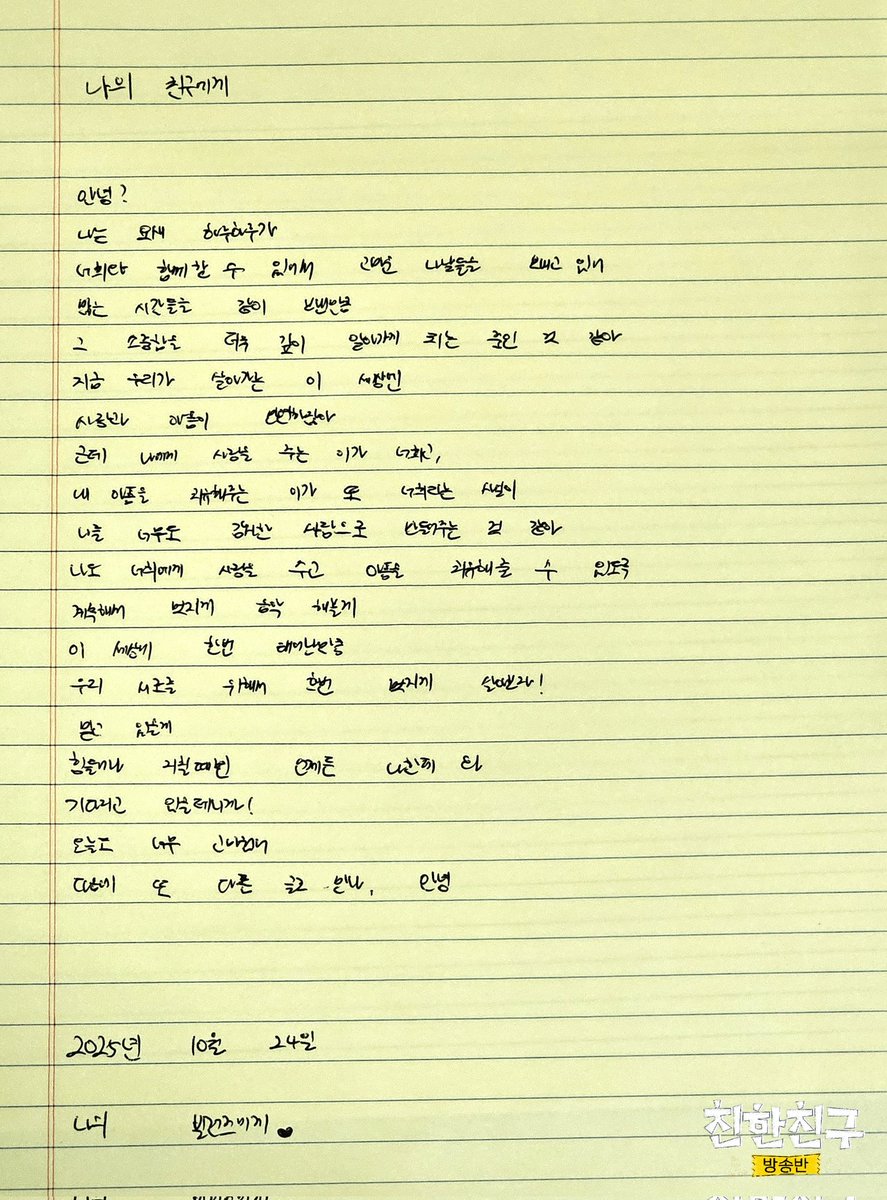 나의 친구에게
안녕?
나는 요새 하루하루가
너희랑 함께할 수 있어서 고마운 나날들을 보내고 있어
많은 시간들을 같이 보낸만큼
그 소중함을 더욱 깊이 알아가게 되는 중인 것 같아
지금 우리가 살아가는 이 세상엔
사랑과 아픔이 만연하잖아
근데 나에게 사랑을 주는 이가 너희고,
내 아픔을 치유해주는 이가 또 너희라는 사실이
나를 너무도 강인한 사람으로 만들어주는 것 같아
나도 너희에게 사랑을 주고 아픔을 치유해줄 수 있도록
계속해서 멋지게 음악 해볼게
이 세상에 한번 태어난만큼
우리 서로를 위해서 한번 멋지게 살아보자!
믿고 있을게
힘들거나 지칠때면 언제든 나한테 와
기다리고 있을테니까!
오늘도 너무 고마웠어
다음에 또 다른 글로 만나, 안녕
2025년 10월 24일
나의
친한친구
방송반